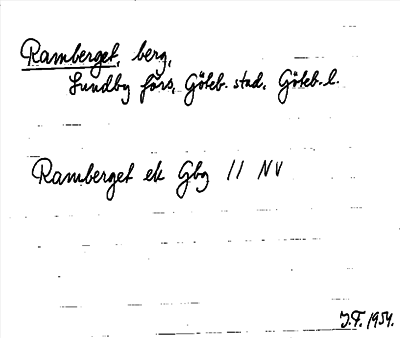 Ramberget, berg,
Lundby förs, Göteb. stad, Göteb. l.
Ramberget ek Gbg 11 NV
J.F. 1954.